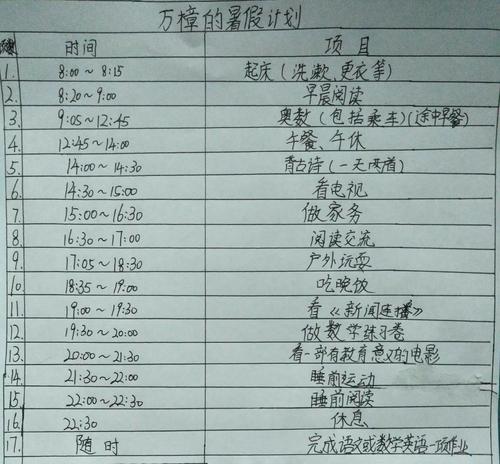 万樟的暑假计划
时间 项目
1. 8:00~8:15 起床(洗漱、更衣等)
2. 8:20~9:00 早晨阅读
3. 9:05~12:45 奥数(包括乘车)(途中早餐)
4 12:45~14:00 午餐、午休
5 14:00~14:30 背古诗(一天两首)
6 14:30~15:00 看电视
7. 15:00~16:30 做家务
8. 16:30~17:00 阅读交流
9. 17:05~18:30 户外玩耍
10. 18:35~19:00 吃晚饭
11. 19:00~19:30 看《新闻连播》
12. 19:30~20:00 做数学练习卷
13. 20:00~21:30 看一部有教育意义的电影
14. 21:30~22:00 睡前运动
15. 22:00~22:30 睡前阅读
16. 22:30 休息
17. 随时 完成语文或数学英语一项作业